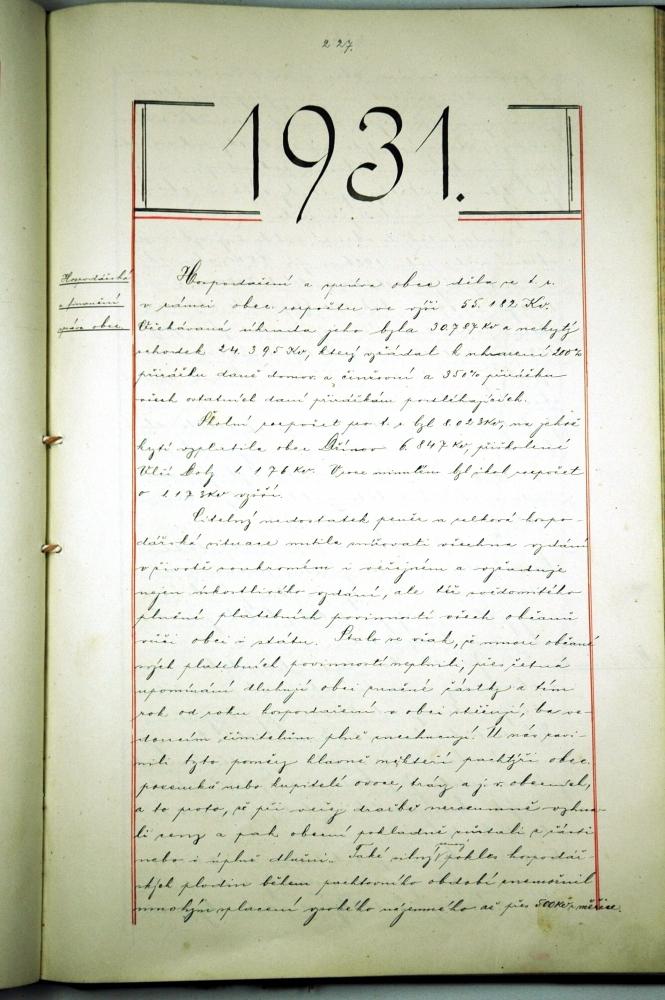 227.
1931.
Hospodářská
a finanční
správa obce.
Hospodaření a správa obce děla se t. r.
v rámci obec. rozpočtu ve výši 55.182 Kč.
Očekávaná úhrada jeho byla 30.787 Kč a nekrytý
schodek 24.395 Kč, který vyžádal k uhrazení 200%
přirážku daně domov. a činžovní a 350% přirážku
všech ostatních daní přirážkám podléhajících.
Školní rozpočet pro t. r. byl 8.023 Kč, na jehož
krytí vyplatila obec Dřínov 6.847 Kč, přiškolené
Vlčí Doly 1.176 Kč. V roce minulém byl škol. rozpočet
o 1173 Kč vyšší.
Citelný nedostatek peněz a celková hospo-
dářská situace nutila snižovati všechna vydání
v životě soukromém i veřejném a vyžaduje
nejen úzkostlivého vydání, ale též svědomitého
plnění platebních povinností všech občanů
vůči obci i státu. Stalo se však, že mnozí občané
svých platebních povinností neplnili, přes četná
upomínání dluhují obci značné částky a tím
rok od roku hospodaření v obci stěžují, ba ve-
doucím činitelům plně znechucují. U nás zavi-
nili tyto poměry hlavně někteří pachtýři obec.
pozemků nebo kupitelé ovoce, trávy a j. v. obecních,
a to proto, že při veřej. dražbě nerozumně vyhna-
li ceny a pak obecní pokladně zůstali z části
nebo i úplně dlužni. Také silný cenný pokles hospodář-
ských plodin během pachtovního období znemožnil
mnohým splacení vysokého nájemného až přes 500 Kč z měřice.